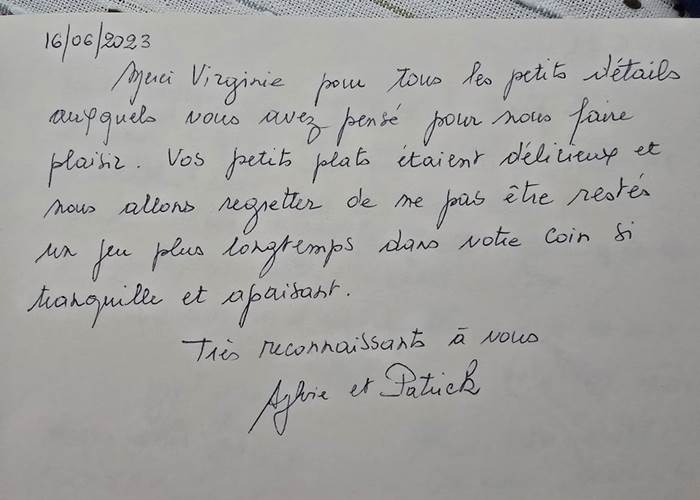 16/06/2023
Merci Virginie pour tous les petits détails
auxquels vous avez pensé pour nous faire
plaisir. Vos petits plats étaient délicieux et
nous allons regretter de ne pas être restés
un peu plus longtemps dans votre coin si
tranquille et apaisant.
Très reconnaissants à vous
Sylvie et Patrick